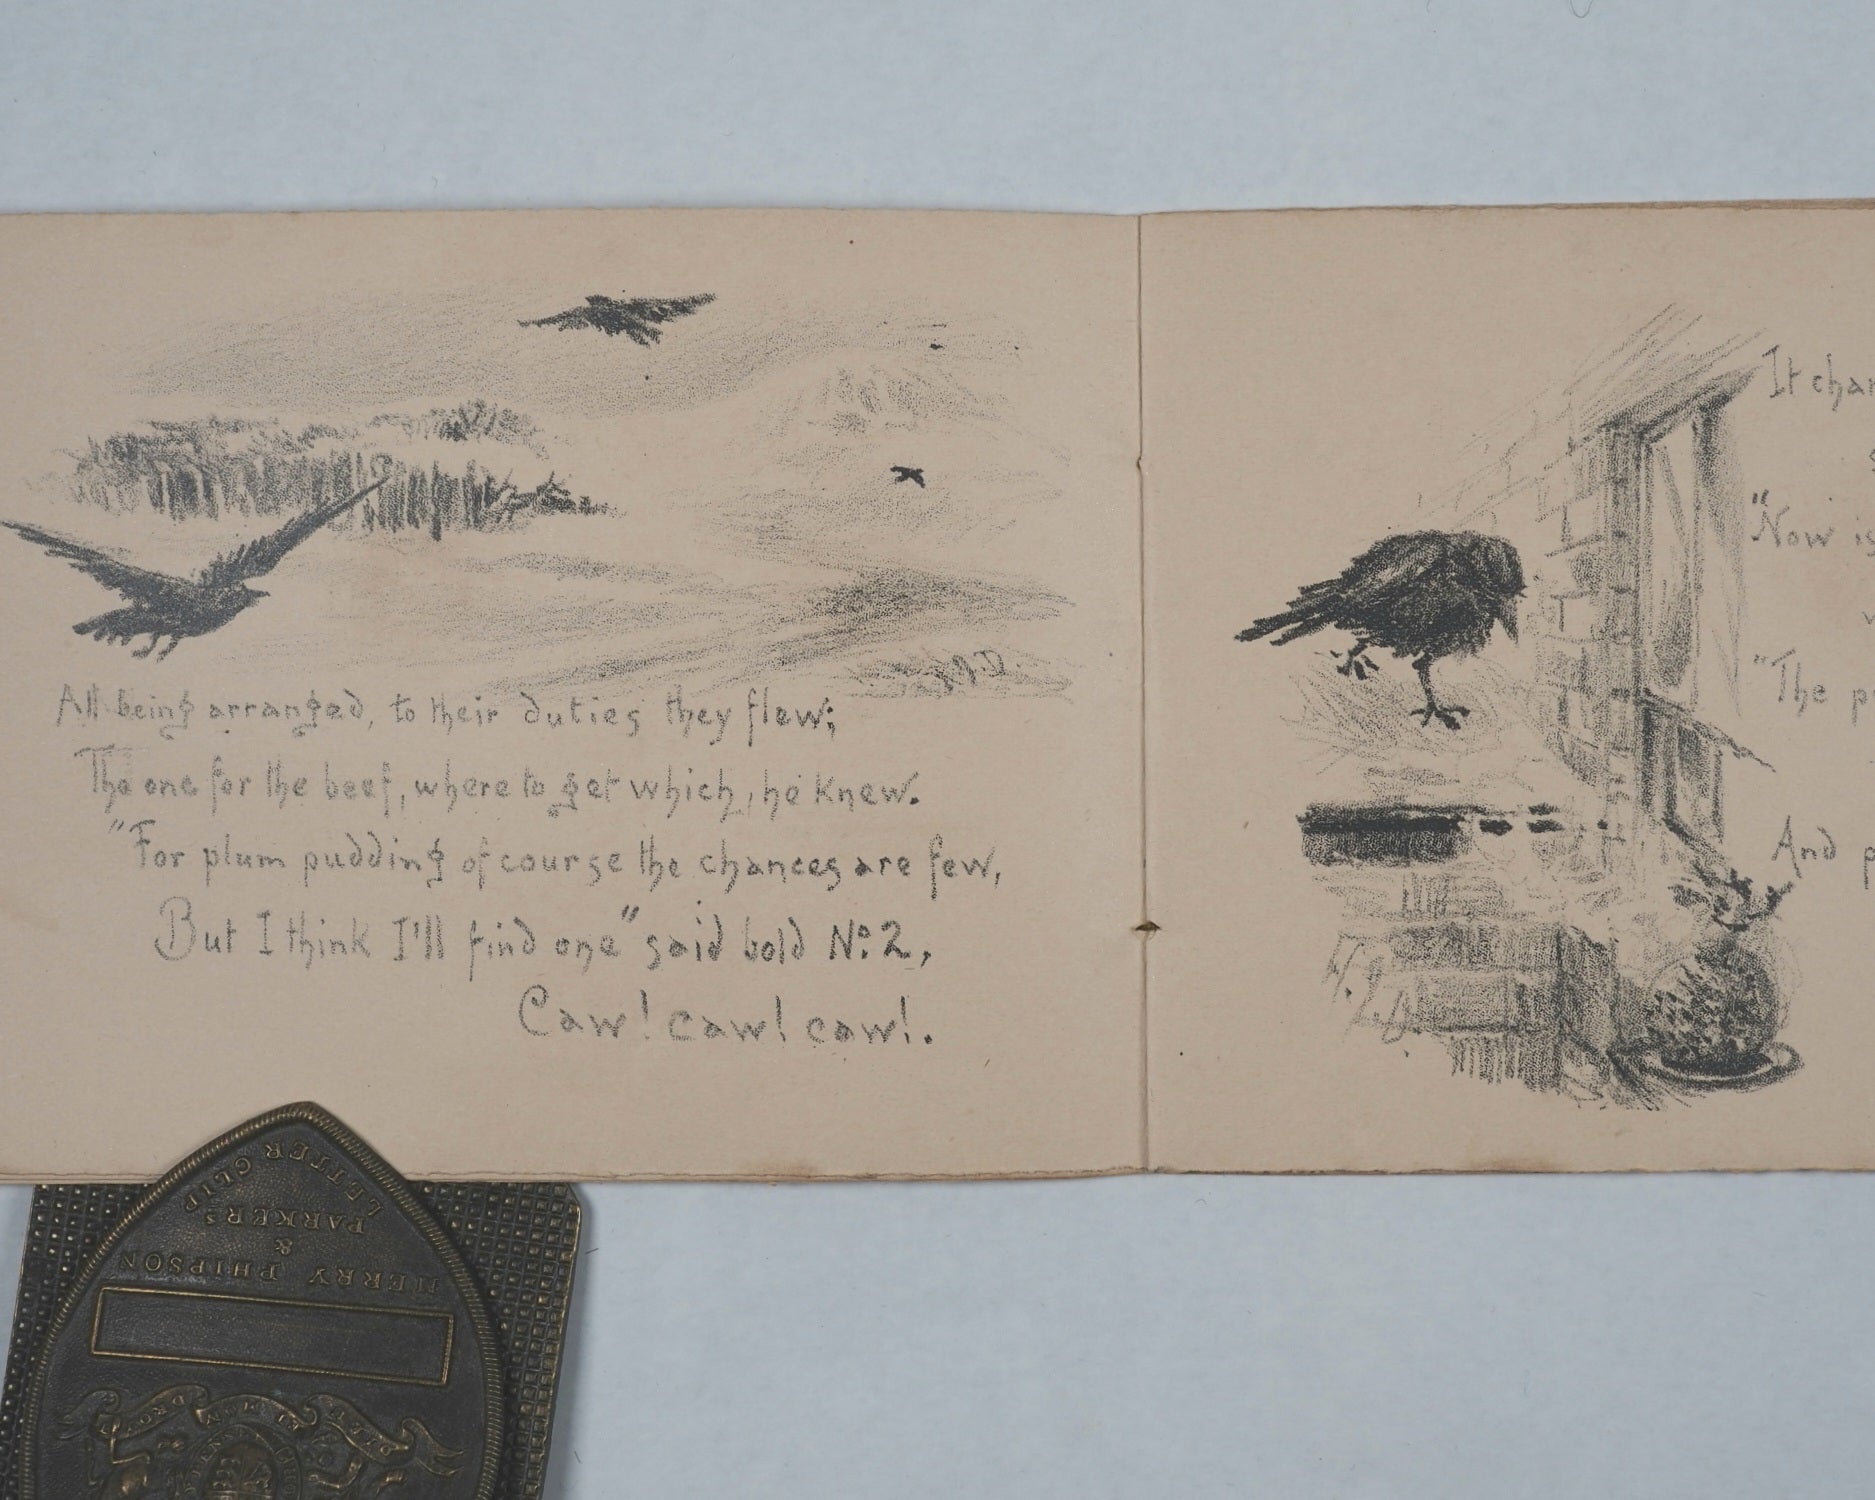 All being arranged, to their duties they flew;
The one for the beef, where to get which, he knew.
"For plum pudding of course the chances are few,
But I think I'll find one" said bold No. 2,
Caw! caw! caw!.
It
"Now is
"The
And
LETTER CLIP
PARKER'S
&
MERRY PHIPSON
DIEU ET MON DROIT